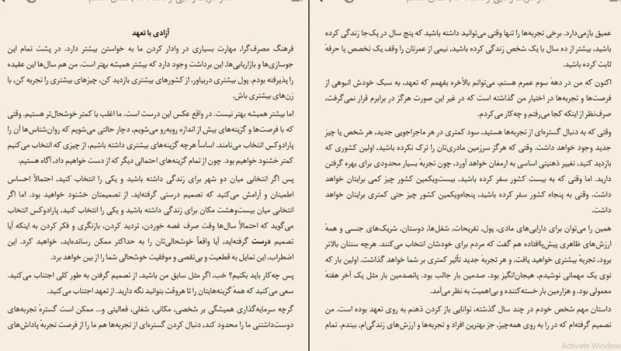 آزادی با تعهد
فرهنگ مصرف‌گرا، مهارت بسیاری در وادار کردن ما به خواستن بیشتر دارد. در پشت تمام این
جوسازی‌ها و بازاریابی‌ها، این برداشت وجود دارد که بیشتر همیشه بهتر است. من هم سال‌ها این عقیده
را پذیرفته بودم. پول بیشتری دربیاور، از کشورهای بیشتری بازدید کن، چیزهای بیشتری را تجربه کن، با
زن‌های بیشتری باش.
اما بیشتر همیشه بهتر نیست. در واقع عکس این درست است. ما اغلب با کمتر خوشحال‌تر هستیم. وقتی
که با فرصت‌ها و گزینه‌های بیش از اندازه روبه‌رو می‌شویم، دچار حالتی می‌شویم که روان‌شناس‌ها آن را
پارادوکس انتخاب می‌نامند. اساساً هرچه گزینه‌های بیشتری داشته باشیم، از چیزی که انتخاب می‌کنیم
کمتر خشنود خواهیم بود. چون از تمام گزینه‌های احتمالی دیگر که از دست خواهیم داد، آگاه هستیم.
پس اگر انتخابی میان دو شهر برای زندگی داشته باشید و یکی را انتخاب کنید، احتمالاً احساس
اطمینان و آرامش می‌کنید که تصمیم درستی گرفته‌اید. از تصمیمتان خشنود خواهید بود. اما اگر
انتخابی میان بیست‌وهشت مکان برای زندگی داشته باشید و یکی را انتخاب کنید، پارادوکس انتخاب
می‌گوید که احتمالاً سال‌ها وقت صرف غصه خوردن، تردید کردن، بازنگری و فکر کردن به اینکه آیا
تصمیم درست گرفته‌اید، آیا واقعاً خوشحالی‌تان را به حداکثر ممکن رسانده‌اید، خواهید کرد. این
اضطراب، این تمایل به قطعیت و بی‌نقصی و موفقیت خوشحالی شما را از بین خواهد برد.
پس چه‌کار باید بکنیم؟ خب، اگر مثل سابق من باشید، از تصمیم گرفتن به طور کلی اجتناب می‌کنید.
سعی می‌کنید که همهٔ گزینه‌هایتان را تا هروقت بتوانید نگه دارید. از تعهد اجتناب می‌کنید.
گرچه سرمایه‌گذاری همیشگی بر شخصی، مکانی، شغلی، فعالیتی و... ممکن است گسترهٔ تجربه‌های
دوست‌داشتنی ما را محدود کند، دنبال کردن گستره‌ای از تجربه‌ها هم ما را از فرصت تجربهٔ پاداش‌های
عمیق بازمی‌دارد. برخی تجربه‌ها را تنها وقتی می‌توانید داشته باشید که پنج سال در یک‌جا زندگی کرده
باشید، بیشتر از ده سال با یک شخص زندگی کرده باشید، نیمی از عمرتان را وقف یک تخصص یا حرفهٔ
ثابت کرده باشید.
اکنون که من در دههٔ سوم عمرم هستم، می‌توانم بالأخره بفهمم که تعهد، به سبک خودش انبوهی از
فرصت‌ها و تجربه‌ها در اختیار من گذاشته است که در غیر این صورت هرگز در برابرم قرار نمی‌گرفت،
صرف‌نظر از اینکه کجا می‌رفتم و چه‌کار می‌کردم.
وقتی که به دنبال گستره‌ای از تجربه‌ها هستید، سود کمتری در هر ماجراجویی جدید، هر شخص یا چیز
جدید وجود خواهد داشت. وقتی که هرگز سرزمین مادری‌تان را ترک نکرده باشید، اولین کشوری که
بازدید کنید، تغییر ذهنیتی اساسی به ارمغان خواهد آورد، چون تجربهٔ بسیار محدودی برای بهره گرفتن
دارید. اما وقتی که به بیست کشور سفر کرده باشید، بیست‌ویکمین کشور چیز کمی برایتان خواهد
داشت. وقتی به پنجاه کشور سفر کرده باشید، پنجاه‌ویکمین کشور چیز حتی کمتری برایتان خواهد
داشت.
همین را می‌توان برای دارایی‌های مادی، پول، تفریحات، شغل‌ها، دوستان، شریک‌های جنسی و همهٔ
ارزش‌های ظاهری پیش‌پاافتاده هم گفت که مردم برای خودشان انتخاب می‌کنند. هرچه سنتان بالاتر
برود، تجربهٔ بیشتری خواهید یافت، و هر تجربهٔ جدید تأثیر کمتری بر شما خواهد گذاشت. اولین بار که
توی یک مهمانی نوشیدم، هیجان‌انگیز بود. صدمین بار جالب بود. پانصدمین بار مثل یک آخر هفتهٔ
معمولی بود. و هزارمین بار خسته‌کننده و بی‌اهمیت به نظر می‌آمد.
داستان مهم شخص خودم در چند سال گذشته، توانایی باز کردن ذهنم به روی تعهد بوده است. من
تصمیم گرفته‌ام که در را به روی همه‌چیز، جز بهترین افراد و تجربه‌ها و ارزش‌های زندگی‌ام، ببندم. تمام
Activate Window